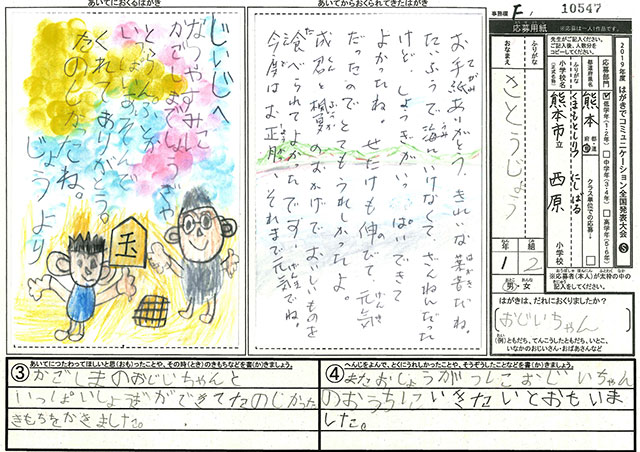 事務欄 F. 10547
あいてにおくるはがき
じいじへ
なつやすみに
かごしまでしょうぎや
とらんぷとか
いっぱいあそんで
くれてありがとう。
たのしかたね。
じょうより
王
あいてからおくられてきたはがき
お手紙ありがとう、きれいな葉書だね。
たいふうで海にいけなくてざんねんだった
けど、しょうぎがいっぱいできて
よかったね。せたけも伸びて、元気
だったので、とてもうれしかったよ。
食べられてよかったです。げんきでね。
今度はお正月。それまで元気でね。
応募用紙
※応募は一人1作品です。
先生がご記入ください。
ご記入後、人数分を
コピーしてください。
2019年度 はがきでコミュニケーション全国発表大会 S
応募部門
低学年(1・2年)
中学年(3・4年)
高学年(5・6年)
都道府県名
熊本
都・道
府・県
クラス単位での応募
小学校名
(正式名称)
ふりがな
くまもとしりつ にしばる
熊本市立 西原 小学校
ふりがな
おなまえ
さとうじょう
年 1
組 2
男・女
※応募者(本人)が太枠の中の
記入をしてください。
はがきは、だれにおくりましたか?
おじいちゃん
(例)ともだち、てんこうしたともだち、いとこ、
いなかのおじいさん・おばあさんなど
③ あいてにつたわってほしいと思(おも)ったことや、その時(とき)のきもちなどを書(か)きましょう。
かごしまのおじいちゃんと
いっぱいしょうぎができてたのしかった
きもちをかきました。
④ へんじをよんで、とくにうれしかったことや、そうぞうしたことなどを書(か)きましょう。
またおしょうがつにおじいちゃん
のおうちにいきたいとおもいま
した。